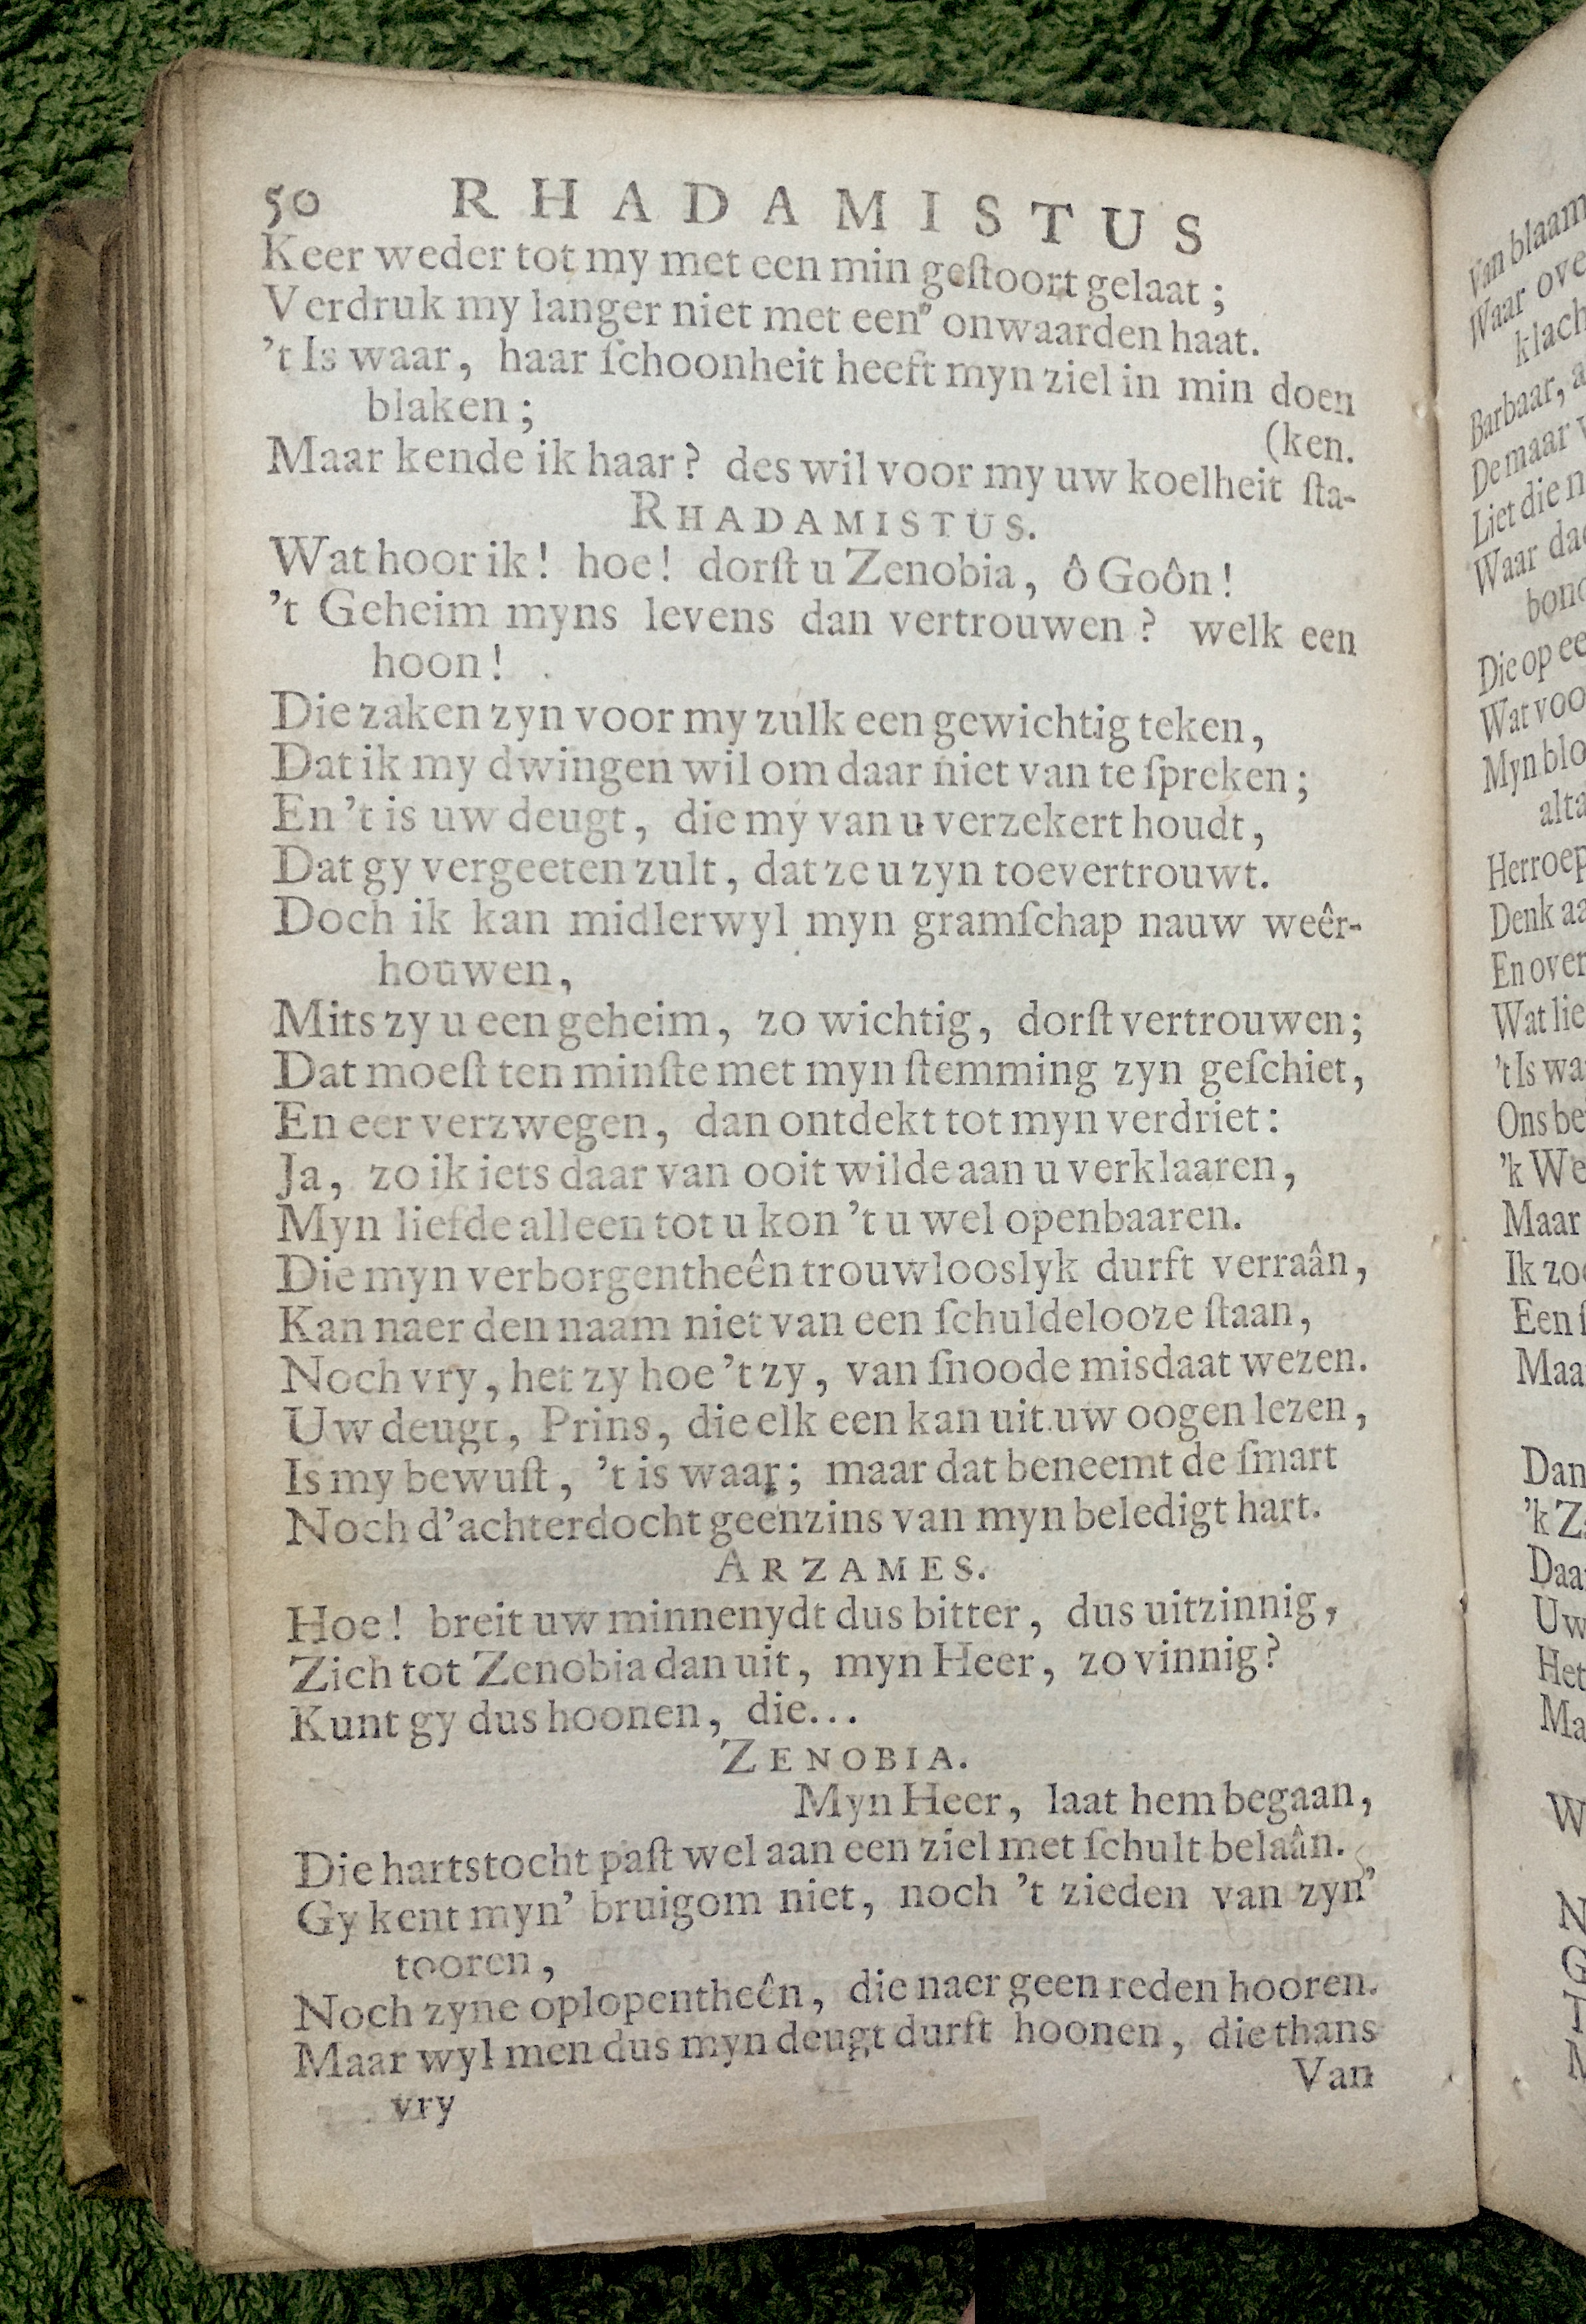 50 RHADAMISTUS
Keer weder tot my met een min geſtoort gelaat;
Verdruk my langer niet met een' onwaarden haat.
't Is waar, haar ſchoonheit heeft myn ziel in min doen
blaken;
(ken.
Maar kende ik haar? des wil voor my uw koelheit ſta-
RHADAMISTUS.
Wat hoor ik! hoe! dorſt u Zenobia, ô Goôn!
't Geheim myns levens dan vertrouwen? welk een
hoon!
Die zaken zyn voor my zulk een gewichtig teken,
Dat ik my dwingen wil om daar niet van te ſpreken;
En 't is uw deugt, die my van u verzekert houdt,
Dat gy vergeeten zult, dat ze u zyn toevertrouwt.
Doch ik kan midlerwyl myn gramſchap nauw weêr-
houwen,
Mits zy u een geheim, zo wichtig, dorſt vertrouwen;
Dat moeſt ten minſte met myn ſtemming zyn geſchiet,
En eer verzwegen, dan ontdekt tot myn verdriet:
Ja, zo ik iets daar van ooit wilde aan u verklaaren,
Myn liefde alleen tot u kon 't u wel openbaaren.
Die myn verborgentheên trouwlooslyk durft verraân,
Kan naer den naam niet van een ſchuldelooze ſtaan,
Noch vry, het zy hoe 't zy, van ſnoode misdaat wezen.
Uw deugt, Prins, die elk een kan uit uw oogen lezen,
Is my bewuſt, 't is waar; maar dat beneemt de ſmart
Noch d'achterdocht geenzins van myn beledigt hart.
ARZAMES.
Hoe! breit uw minnenydt dus bitter, dus uitzinnig,
Zich tot Zenobia dan uit, myn Heer, zo vinnig?
Kunt gy dus hoonen, die...
ZENOBIA.
Myn Heer, laat hem begaan,
Die hartstocht paſt wel aan een ziel met ſchult belaân.
Gy kent myn' bruigom niet, noch 't zieden van zyn'
tooren,
Noch zyne oplopentheên, die naer geen reden hooren.
Maar wyl men dus myn deugt durft hoonen, die thans
vry
Van
Van blaam
Waar ove
klach
Barbaar, a
De maar v
Liet die n
Waar dac
bonc
Die op ee
Wat voo
Myn blo
alta
Herroep
Denk aa
En over
Wat lie
't Is wa
Ons be
'k We
Maar
Ik zo
Een
Maa
Dan
'k Z
Daa
Uw
Het
Ma
W
N
G